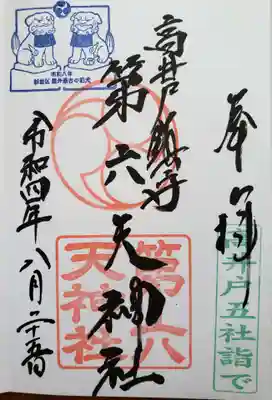 奉拝
高井戸五社詣で
高井戸鎮守
第六天神社
第六
天神社
令和四年八月二十五日